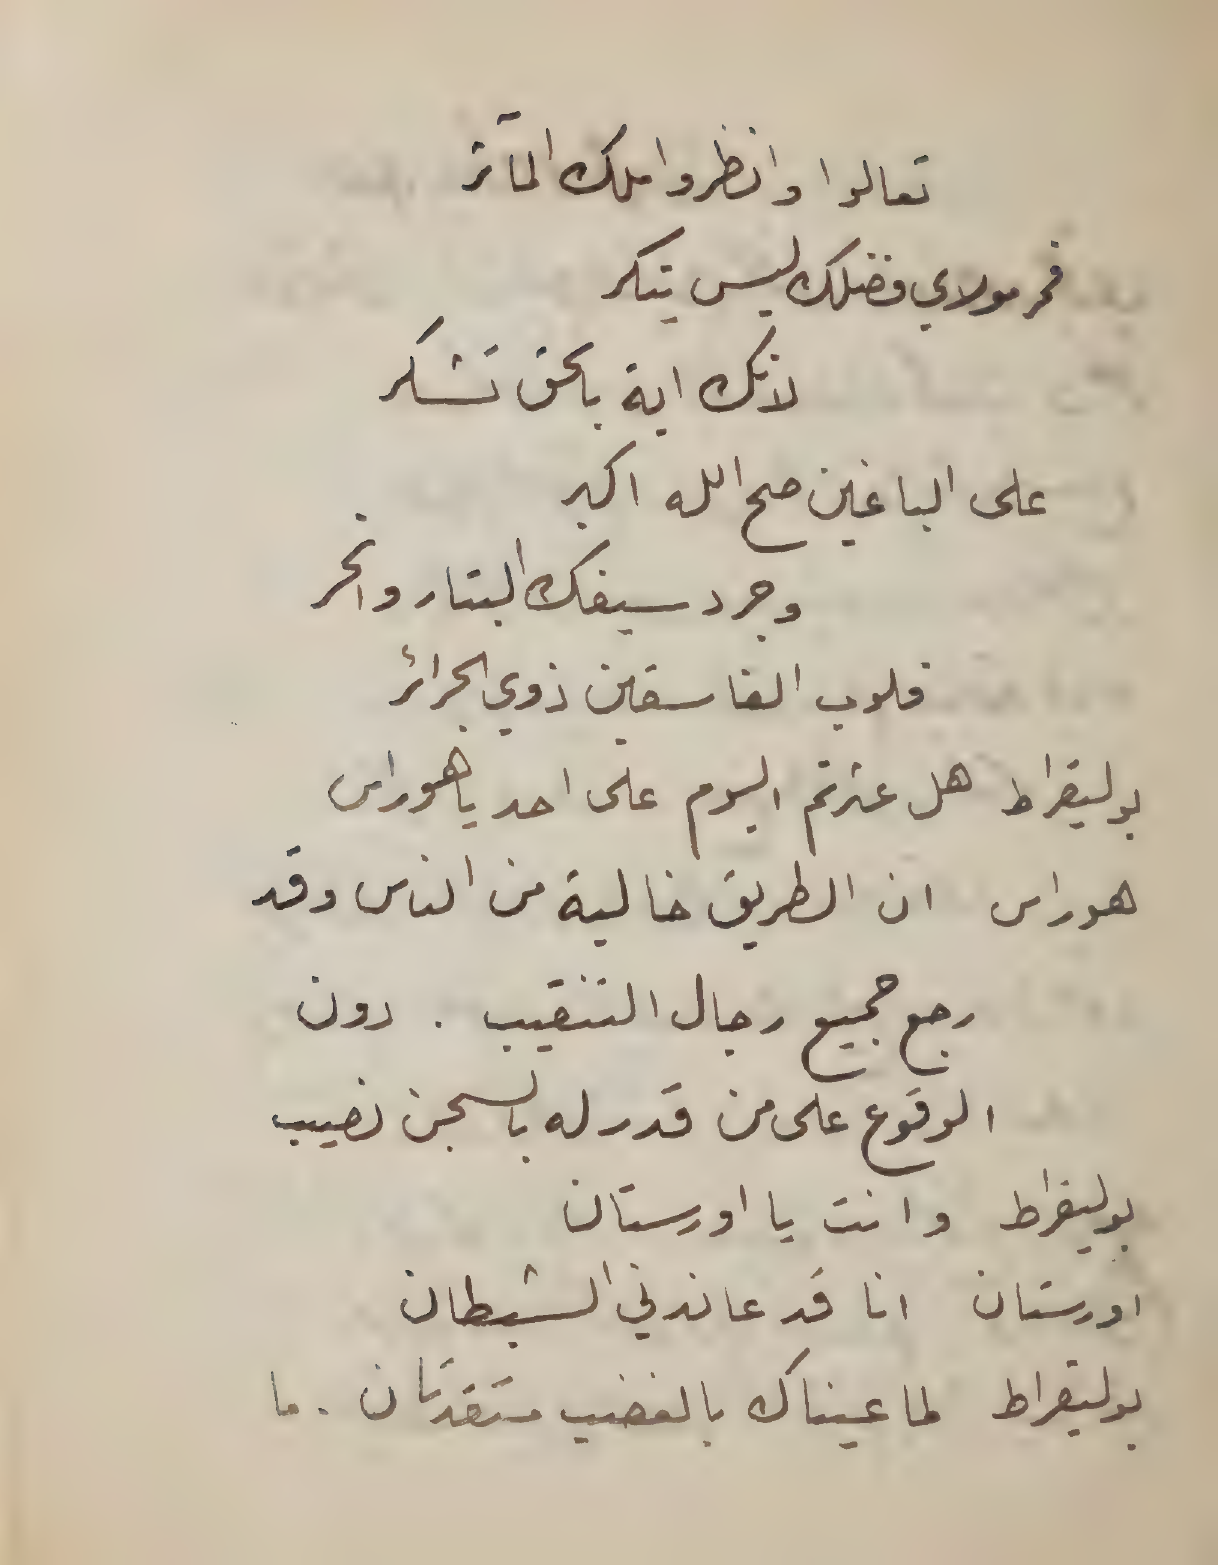 تعالوا وانظروا ملك المآثر
فمر مولاي فضلك ليس ينكر
لانك اية بالحق تشكر
على الباغين صح الله اكبر
وجرد سيفك البتار وانحر
قلوب الفاسقين ذوي الجرائر
بوليقراط هل عثرتم اليوم على احد يا هوراس
هوراس ان الطريق خالية من الناس وقد
رجع جميع رجال التنقيب . دون
الوقوع على من قدر له بالسجن نصيب
بوليقراط وانت يا اورستان
اورستان انا قد عاندني الشيطان
بوليقراط لما عيناك بالغضب متقدتان . ما